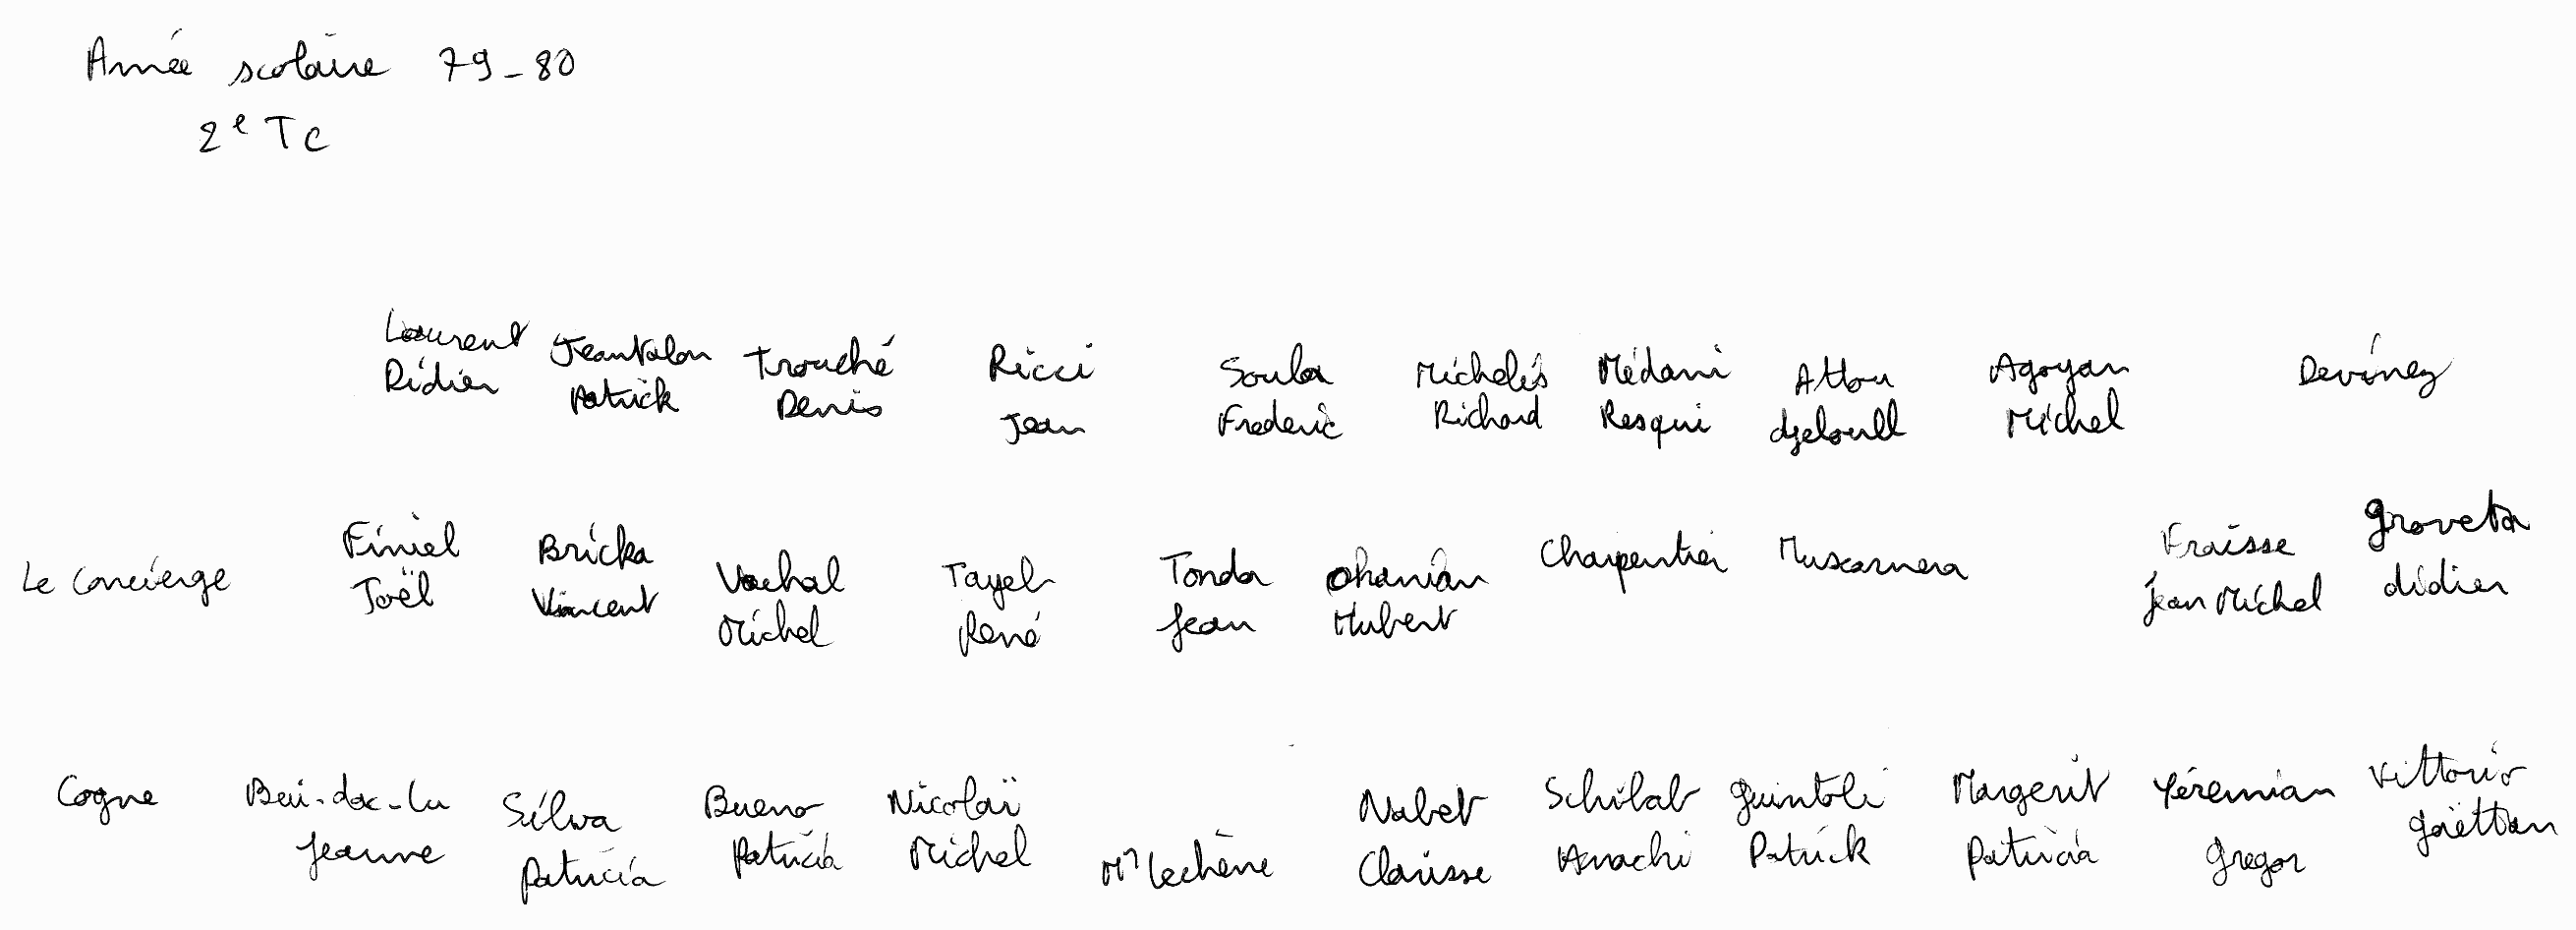 Année scolaire 79-80
2e TC
Laurent Jeantalon Trouché Ricci Soula Michelis Médani Attou Agoyan Devinez
Didier Patrick Denis Jean Frederic Richard Resqui djeloull Michel
Finiel Bricka Vachal Tayeb Tonda Ohanian Charpentier Muscarnera Fraisse groveta
Le Concierge Joël Vincent Michel René Jean Hubert jean Michel didier
Cogne Bui-doc-lu Silva Bueno Nicolaï Nabet Schilat guintoli Margerit Yéremian Vittorio
Jeanne Patricia Patricia Michel Mr Lechène Clarisse Patrick Patricia gregor gaëttan